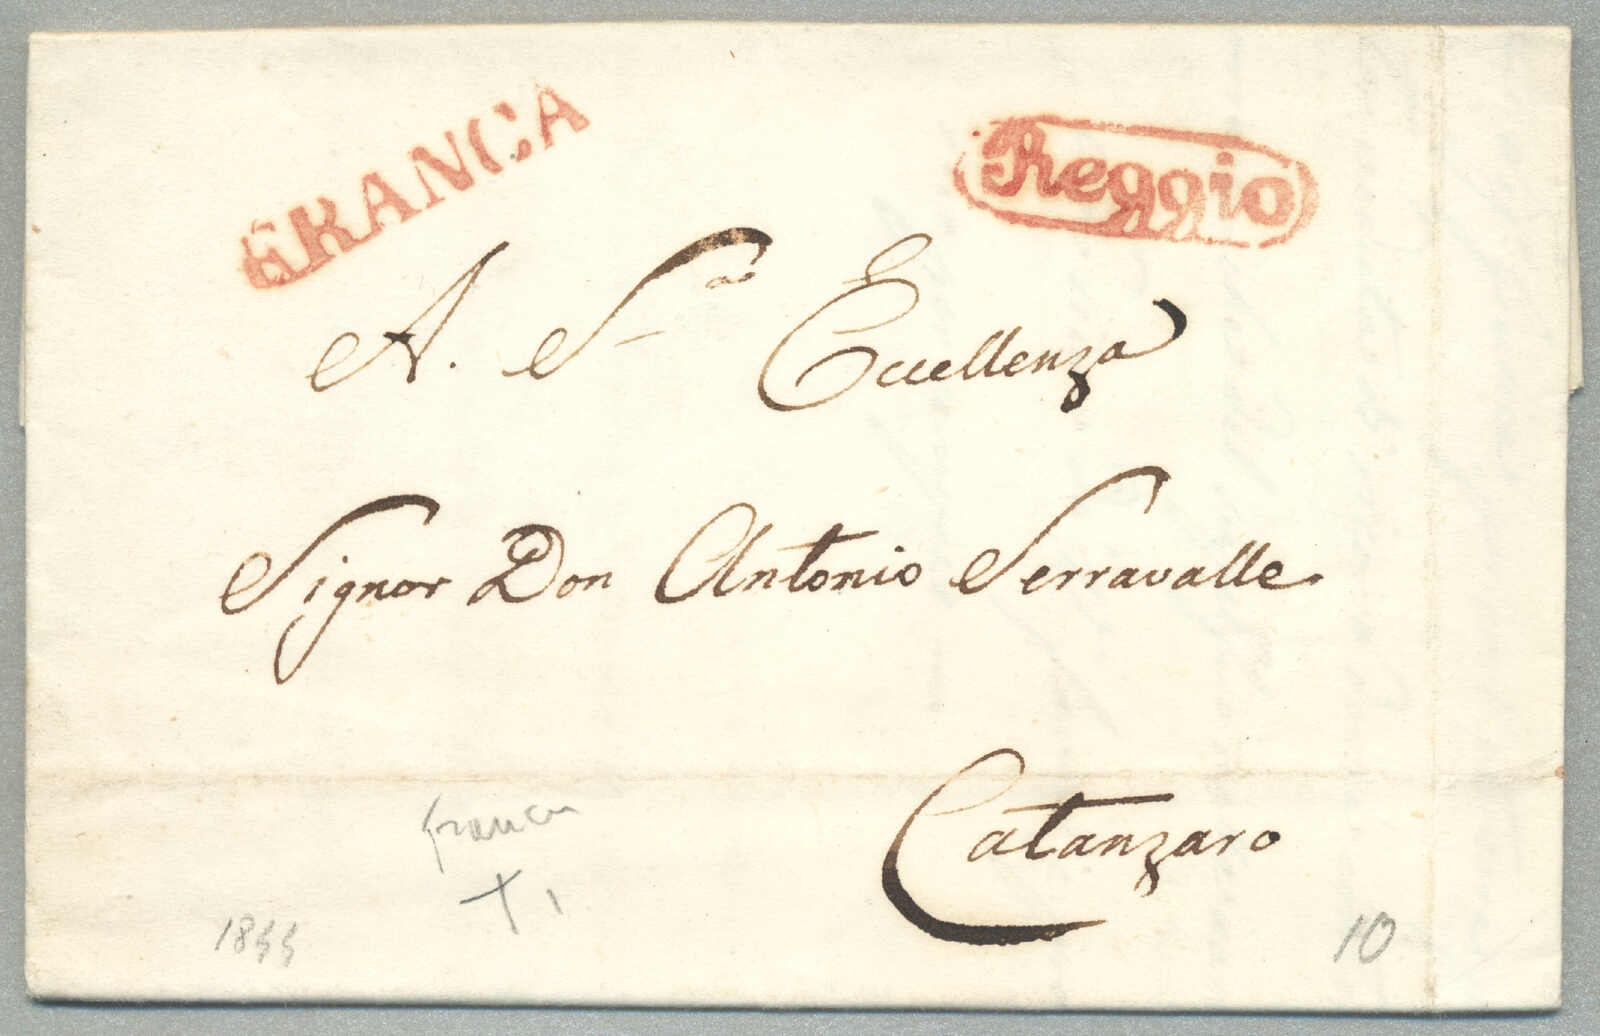 FRANCA
Reggio
A. S.ua Eccellenza
Signor Don Antonio Serravalle.
Catanzaro
franca
1844
10